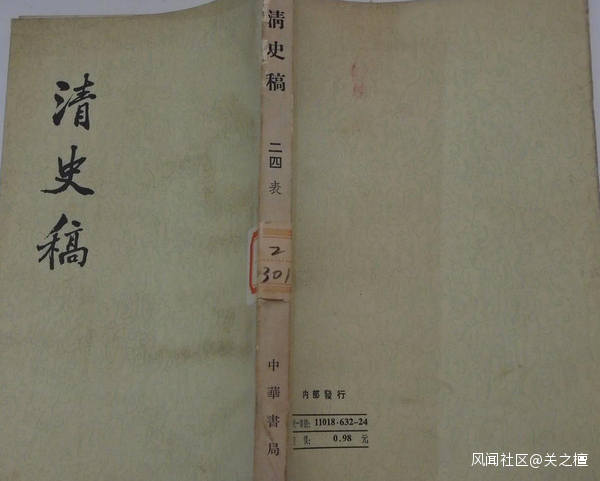 清史稿
清史稿
二四
表
2
301
中華書局
内部發行
11018·632-24
0.98 元
风闻社区@关之檀